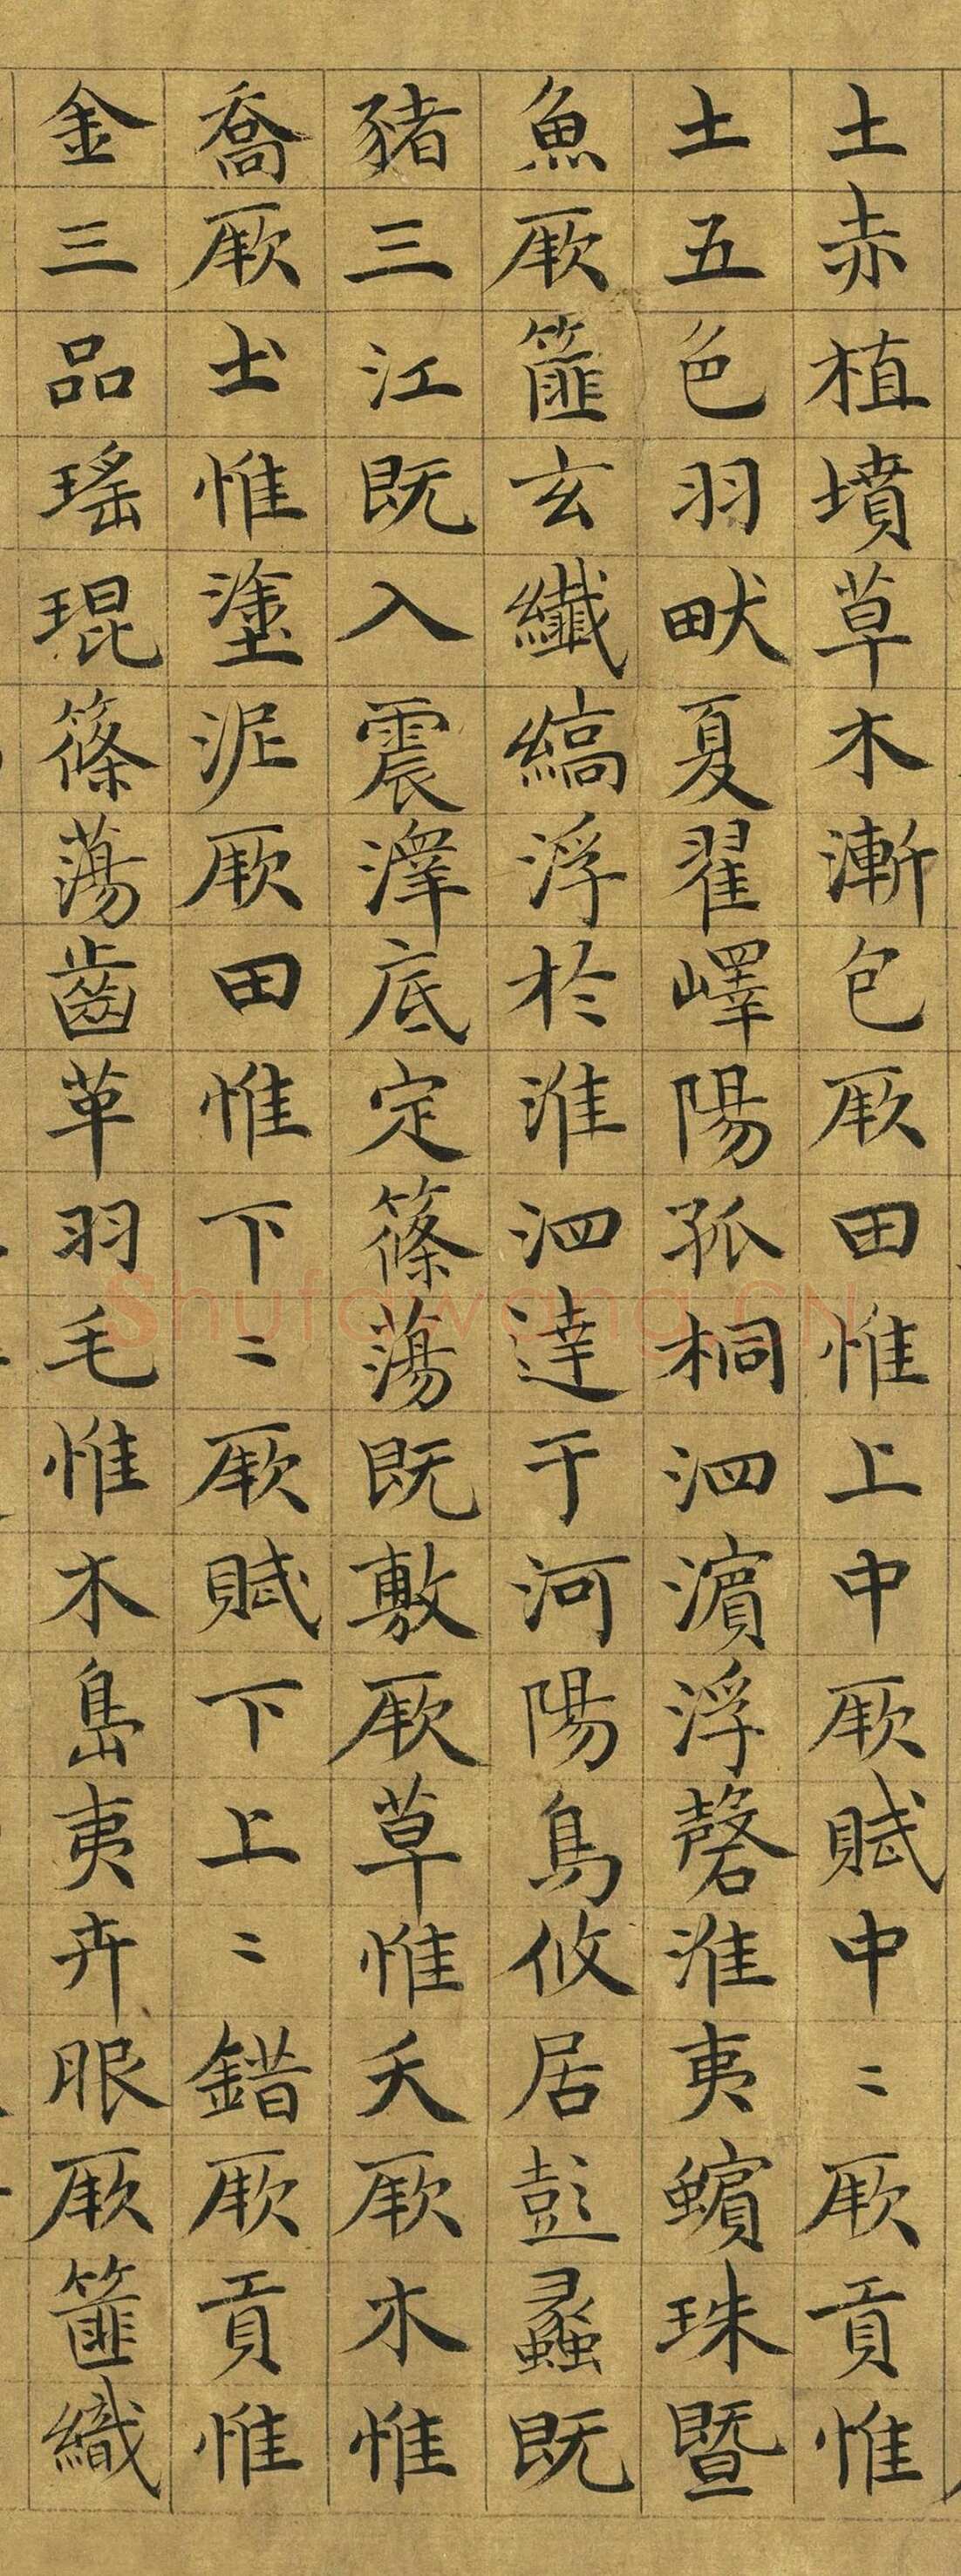 土赤植墳草木漸包厥田惟上中厥賦中〻厥貢惟
土五色羽畎夏翟嶧陽孤桐泗濵浮磬淮夷蠙珠曁
魚厥篚玄纖縞浮於淮泗達于河陽鳥攸居彭蠡既
豬三江既入震澤底定篠蕩既敷厥草惟夭厥木惟
喬厥土惟塗泥厥田惟下〻厥賦下上〻錯厥貢惟
金三品瑶琨篠蕩齒革羽毛惟木島夷卉服厥篚織
Shufawang.CN